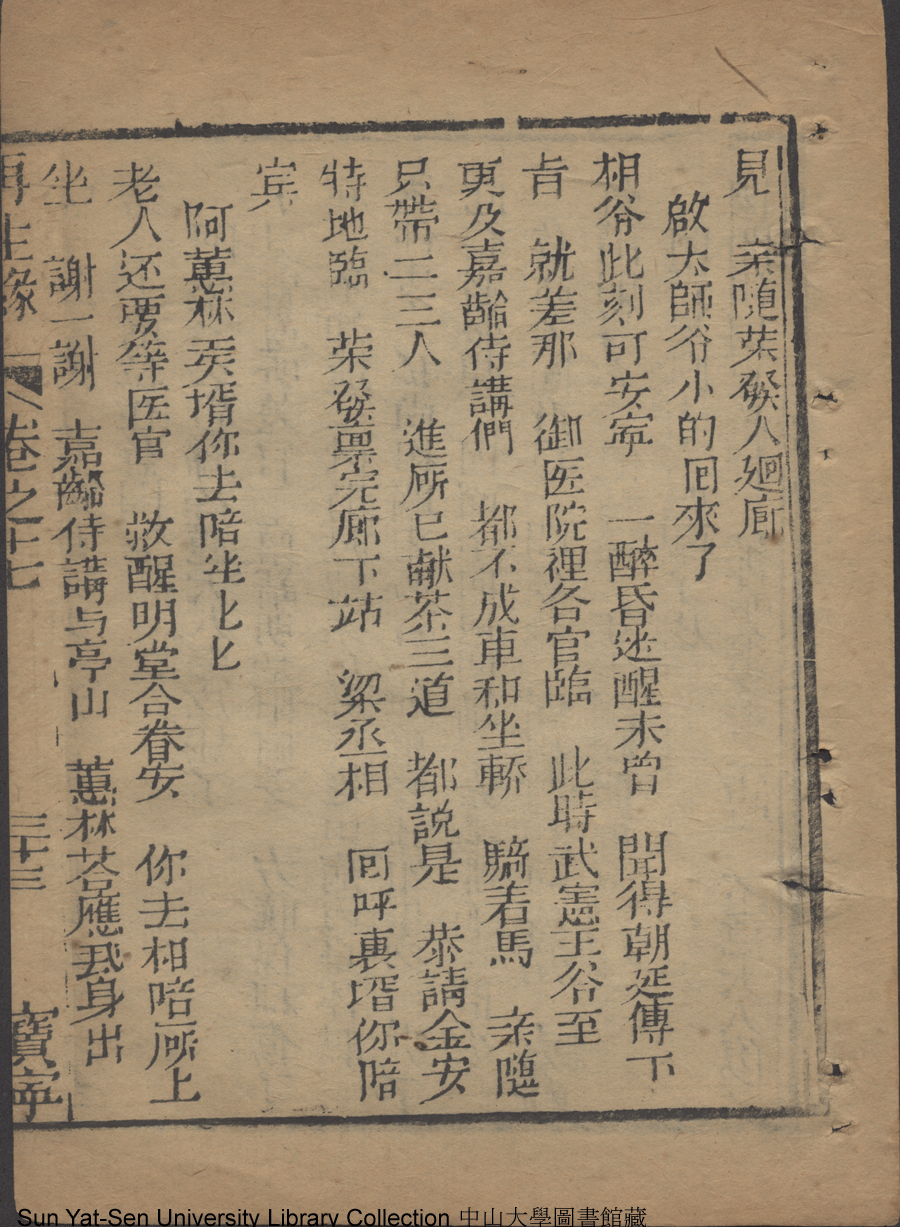 見　亲随荣發入廻廊
啟太師爷小的囘來了
相爷此刻可安寕　一醉昏迷醒未曾　聞得朝廷傳下
旨　就差那　御医院裡各官臨　此時武憲王爷至
更及嘉齡侍講們　都不成車和坐轎　騎着馬　亲隨
只帶二三人　進厛已献茶三道　都説是　恭請金安
特地臨　荣發禀完廊下站　梁丞相　囘呼裏壻你陪
宾
阿蕙林賢壻你去陪坐匕匕
老人还要等医官　救醒明堂合眷安　你去相陪厛上
坐　謝一謝　嘉齡侍講与亭山　蕙林荅應我身出
再生緣　卷之十七　三十三　寶寕
Sun Yat-Sen University Library Collection 中山大學圖書館藏